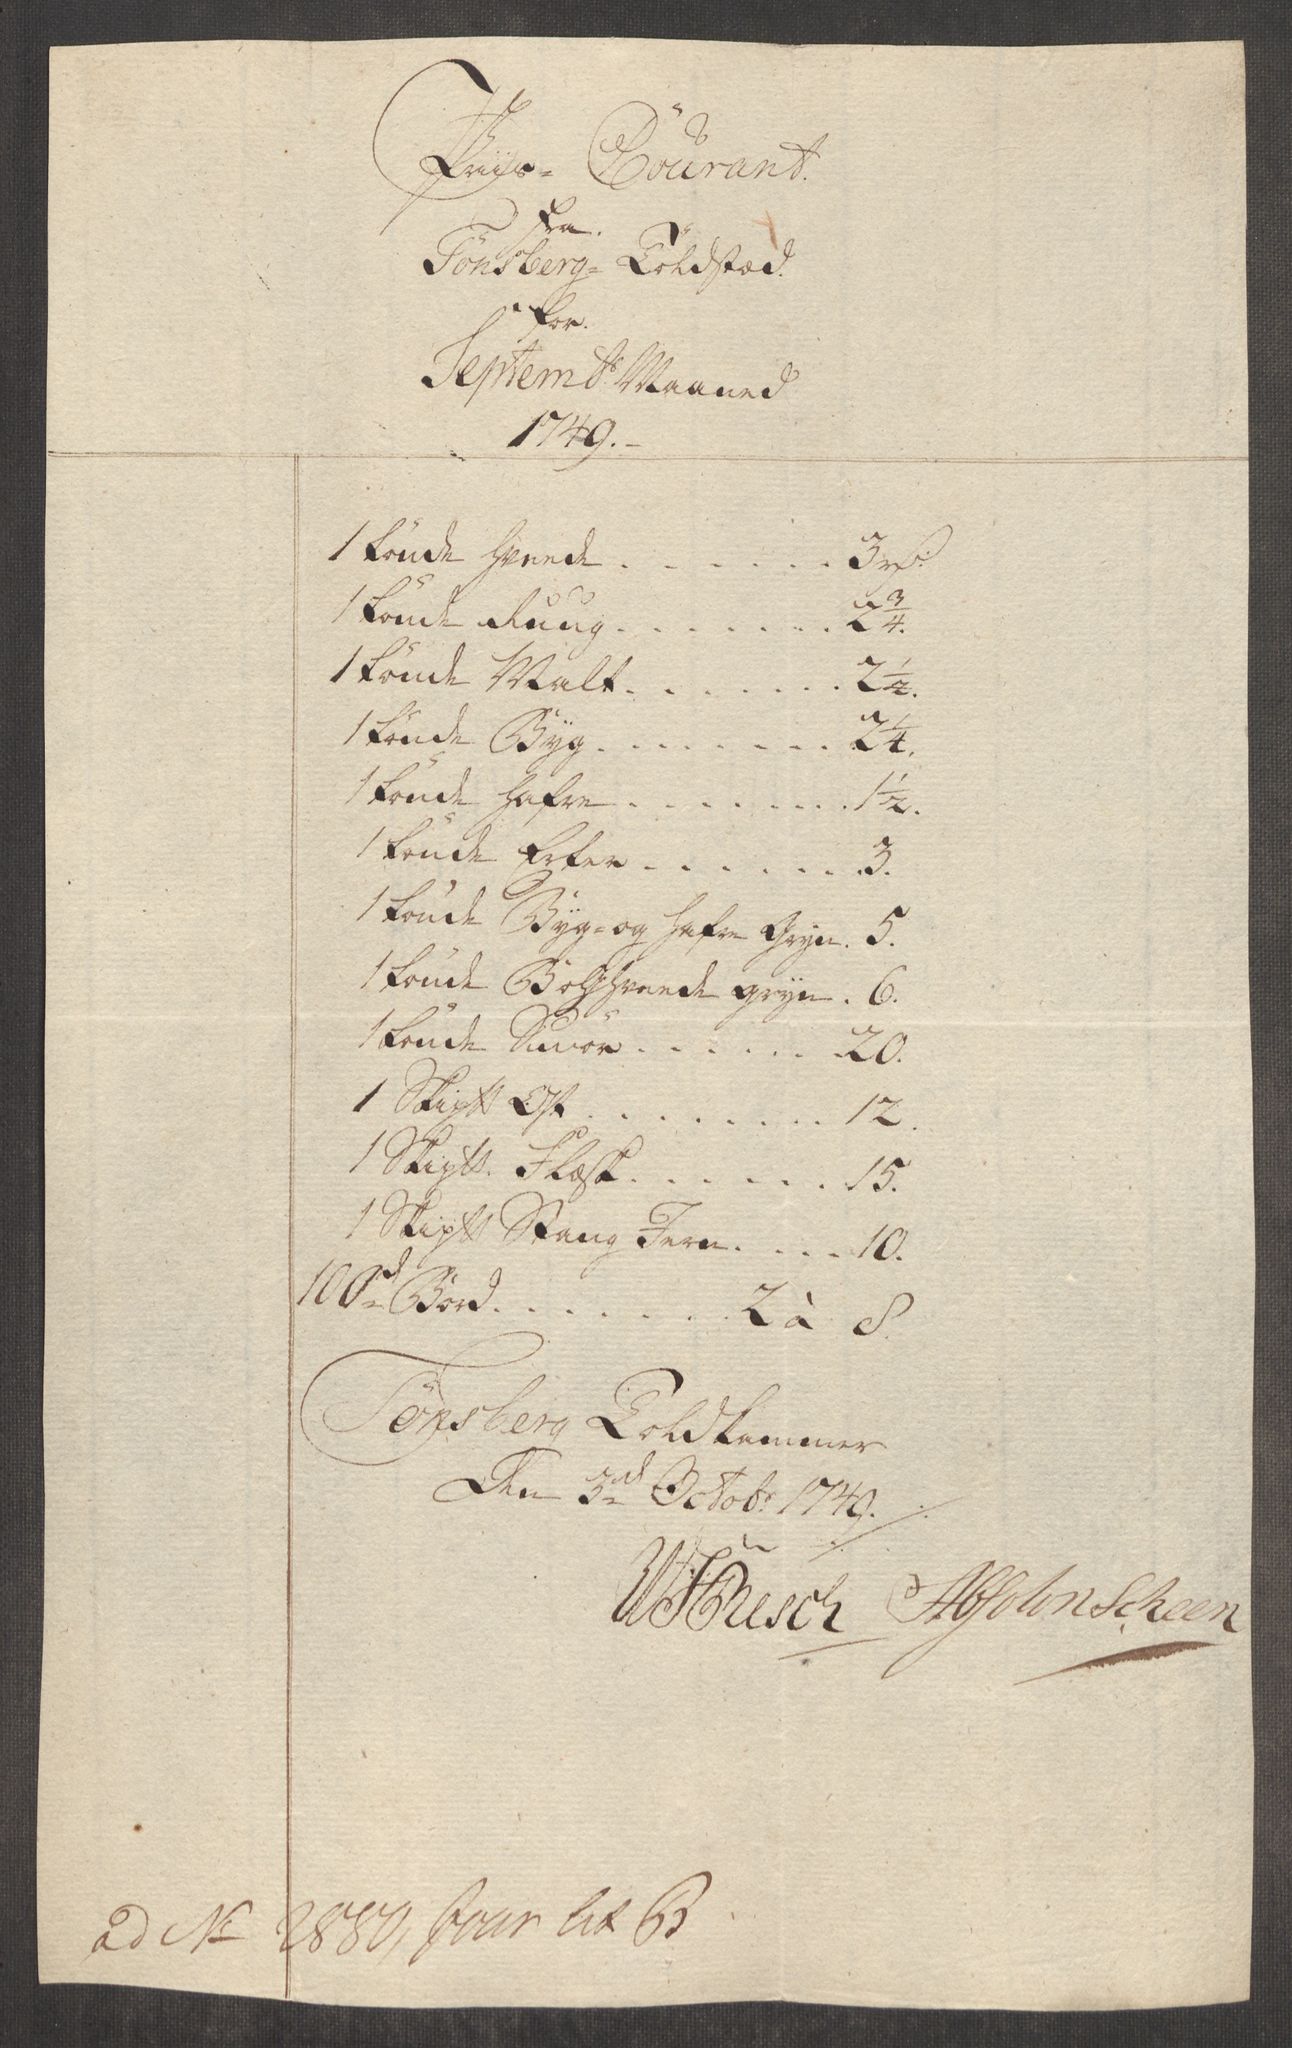 Priis- Courant.
fra.
Tönsberg- Toldstæd.
for.
Septembr Maaned
1749.-
1 tönde Hveede . . . . . . . 3 rd:
1 tönde Ruug . . . . . . . 2 3/4.
1 tönde Malt . . . . . . . 2 1/2.
1 tönde Byg . . . . . . . 2 1/4.
1 tönde Hafre . . . . . . . 1 1/2.
1 tönde Erter . . . . . . . 3.
1 tönde Byg- og Hafre Gryn . 5.
1 tönde Boghveede gryn . 6.
1 tönde Smör . . . . . . 20.
1 Skiptt Ost . . . . . . . 12.
1 Skiptt. Flæsk . . . . . . 15.
1 Skiptt Stang Jern . . . . 10.
100de Bord . . . . . . . 2 à 8.
Tönsberg Toldkammer
Den 3de Octobr 1749.
Resch Absolon Scheen
ad No 2880, Jour lit B